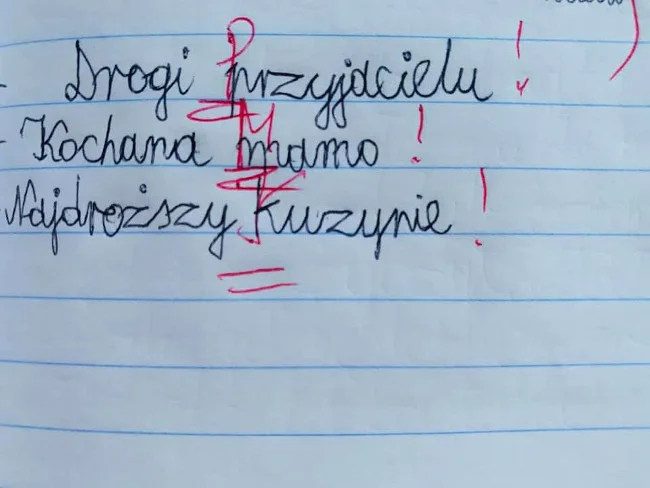 - Drogi Przyjacielu!
- Kochana Mamo!
Najdroższy Kuzynie!